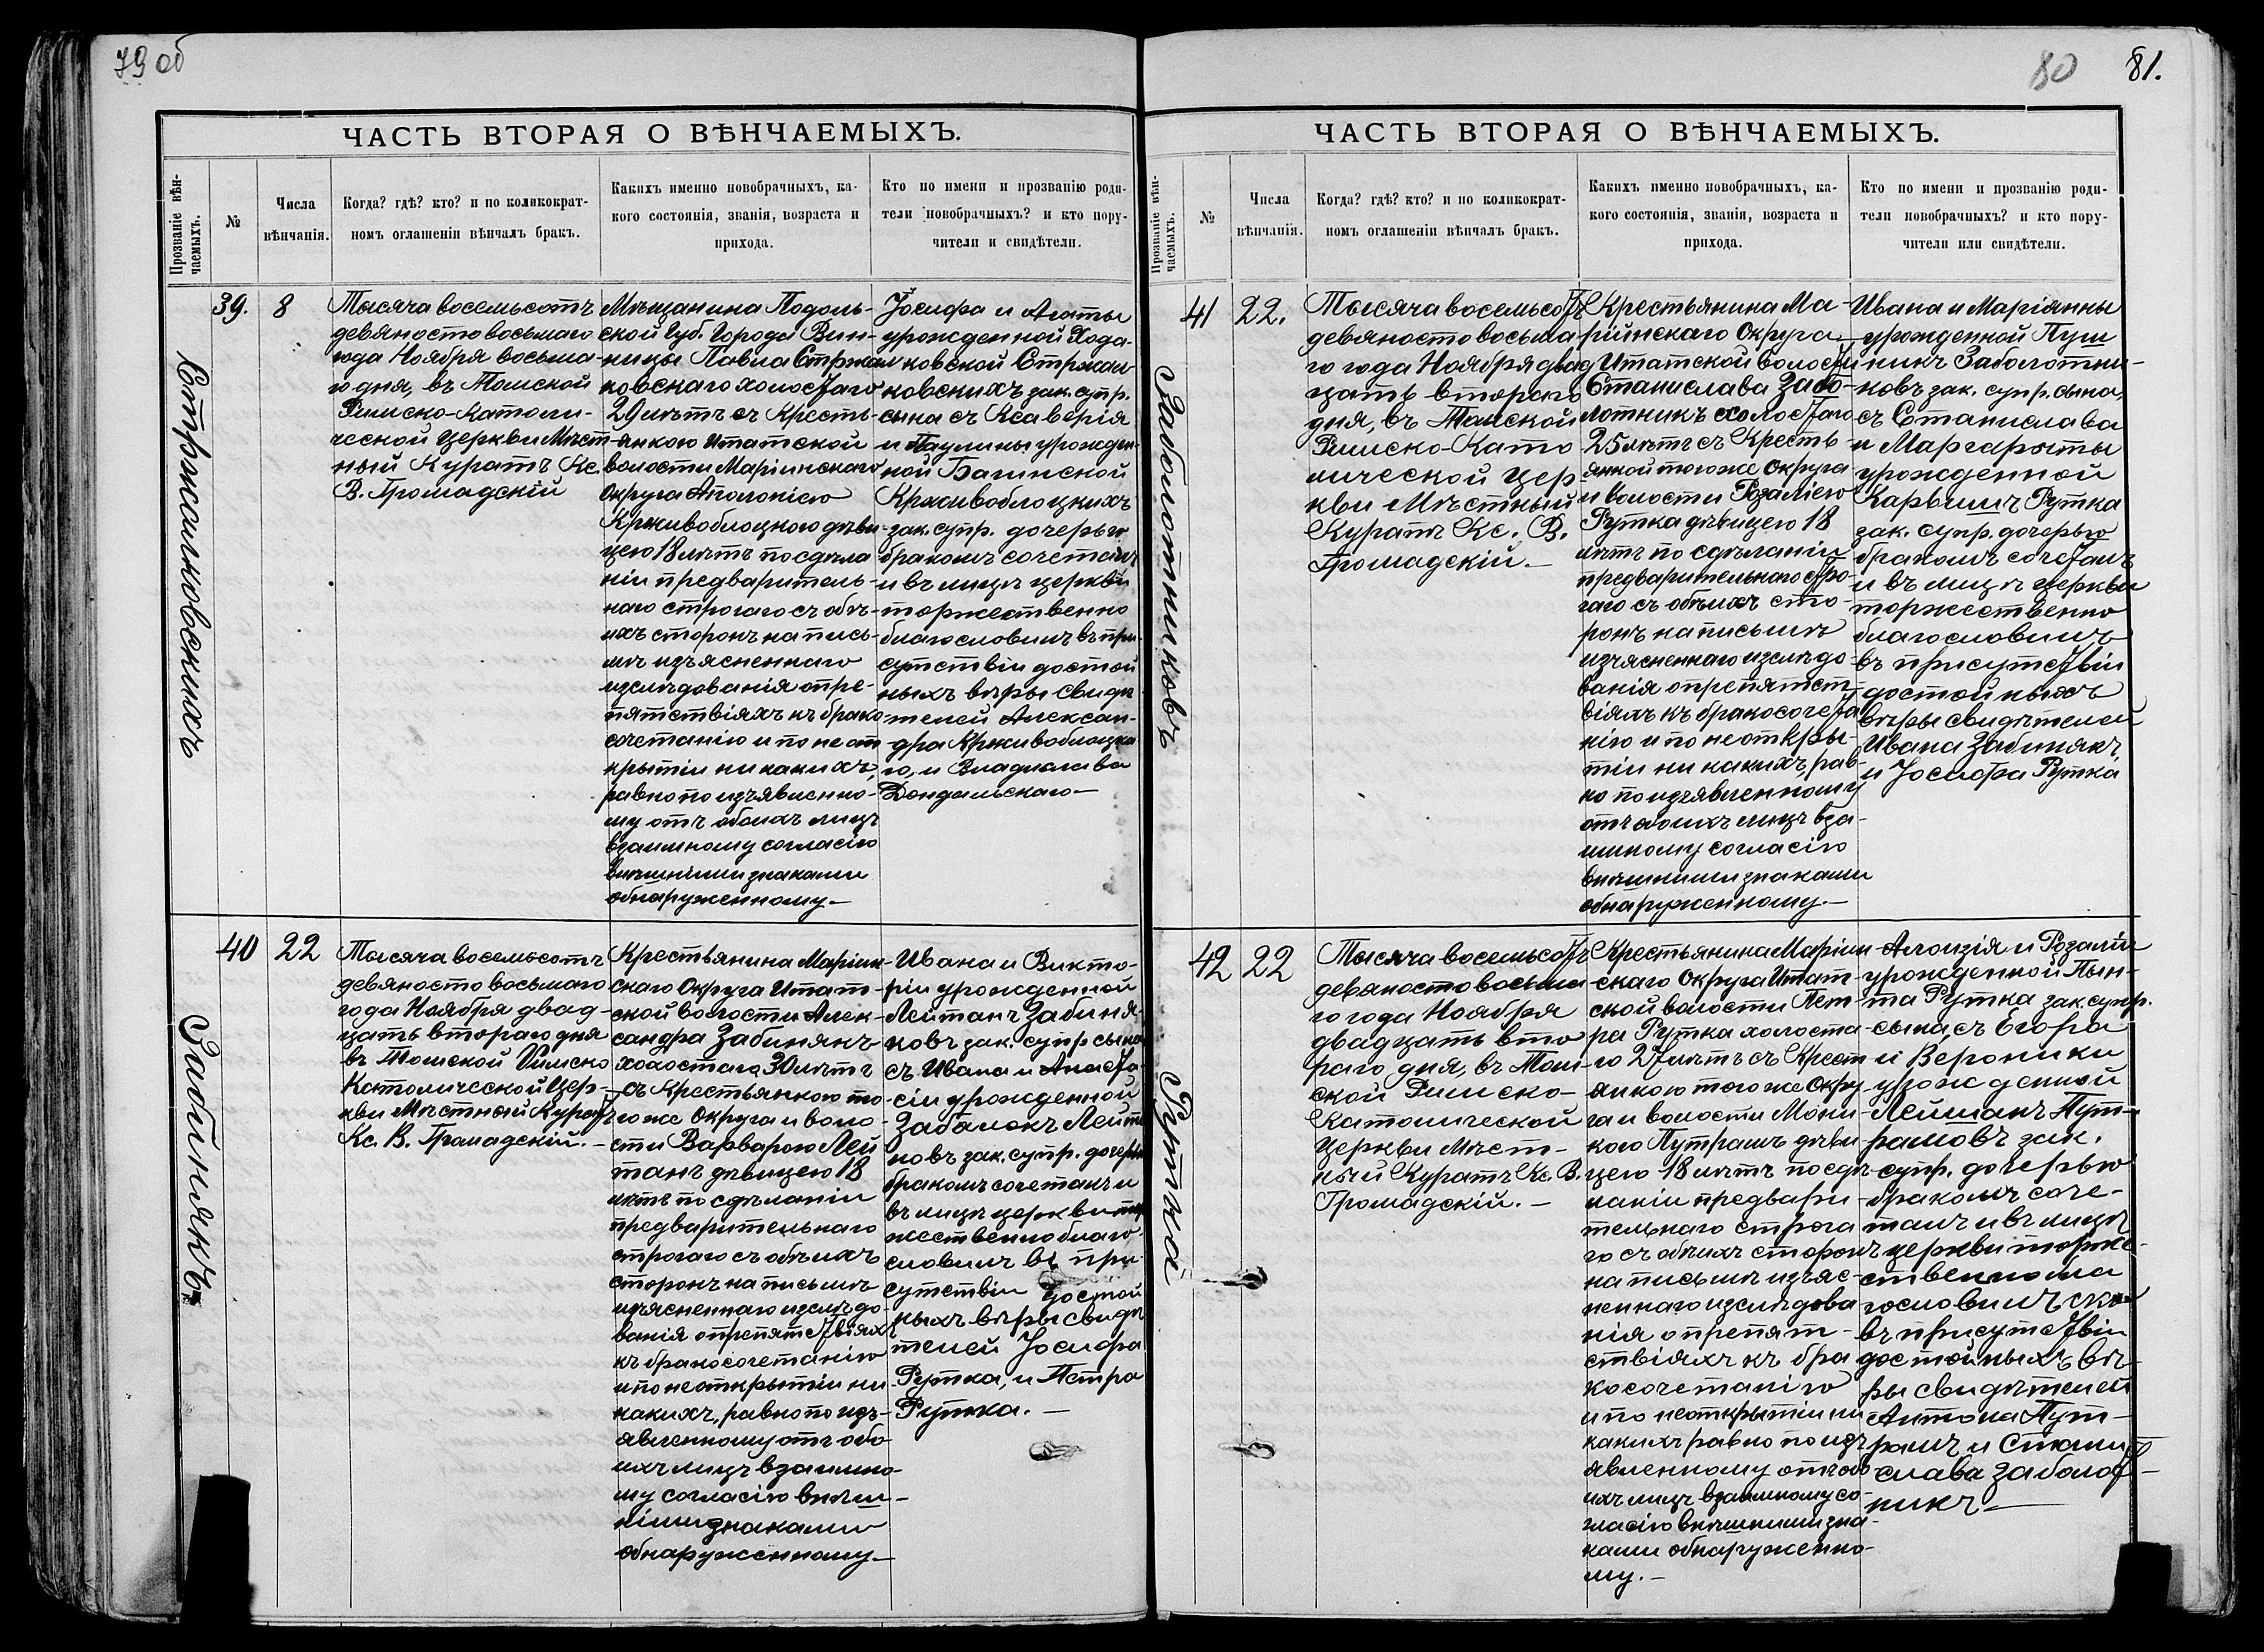 79 об
ЧАСТЬ ВТОРАЯ О ВѢНЧАЕМЫХЪ.
Прозваніе вѣн-
чаемыхъ.
№
Числа
вѣнчанія.
Когда? гдѣ? кто? и по коликократ-
номъ оглашеніи вѣнчалъ бракъ.
Какихъ именно новобрачныхъ, ка-
кого состоянія, званія, возраста и
прихода.
Кто по имени и прозванію роди-
тели новобрачныхъ? и кто пору-
чители и свидѣтели.
Стржалковскихъ
39.
8
Тысяча восемьсотъ
девяносто восьмаго
года Ноября восьма-
го дня, въ Томской
Римско-Католи-
ческой Церкви Мѣст-
ный Куратъ Кс.
В. Громадскій
Мѣщанина Подоль-
ской Губ. Города Вин-
ницы Павла Стржал-
ковскаго холостаго
29 лѣтъ съ Кресть-
янкою Итатской
волости Маріинскаго
Округа Аполоніею
Крживоблоцкою дѣви-
цею 18 лѣтъ по сдѣла
ніи предваритель-
наго строгаго съ обѣ-
ихъ сторонъ на пись-
мѣ изъясненнаго
изслѣдованія о пре-
пятствіяхъ къ брако-
сочетанію и по не от
крытіи никакихъ,
равно по изъявленно-
му отъ обоихъ лицъ
взаимному согласію
внѣшними знаками
обнаруженному.—
Іосифа и Агаты
урожденной Хода-
ковской Стржал
ковскихъ зак. супр.
сына съ Ксаверія
и Паулины урожден-
ной Багинской
Крживоблоцкихъ
зак. супр. дочерью
бракомъ сочеталъ
и въ лицѣ церкви
торжественно
благословилъ въ при-
сутствіи достой
ныхъ вѣры свидѣ
телей Алексан-
дра Крживоблоцка
го, и Владислава
Дондальскаго—
Забинякъ
40
22
Тысяча восемьсотъ
девяносто восьмаго
года Ноября двад-
цать втораго дня
въ Томской Римско
Католической Цер-
кви Мѣстный Куратъ
Кс. В. Громадскій.—
Крестьянина Маріин-
скаго Округа Итат-
ской волости Алек-
сандра Забинякъ
холостаго 30 лѣтъ
съ Крестьянкою то-
гоже Округа и воло-
сти Варварою Лей
танъ дѣвицею 18
лѣтъ по сдѣланіи
предварительнаго
строгаго съ обѣихъ
сторонъ на письмѣ
изъясненнаго изслѣдо-
ванія о препятствіяхъ
къ бракосочетанію
и по не открытіи ни
какихъ, равно по изъ-
явленному отъ обо
ихъ лицъ взаимно-
му согласію внѣш-
ними знаками
обнаруженному.—
Ивана и Викто-
ріи урожденной
Лейтанъ Забиня-
ковъ зак. супр сына
съ Ивана и Анаста
сіи урожденной
Забалокъ Лейта
новъ зак. супр. дочерью
бракомъ сочеталъ и
въ лицѣ церкви тор
жественно благо-
словилъ въ при
сутствіи достой
ныхъ вѣры свидѣ
телей Іосифа
Рутка, и Петра
Рутка.—
80
81.
ЧАСТЬ ВТОРАЯ О ВѢНЧАЕМЫХЪ.
Прозваніе вѣн-
чаемыхъ.
№
Числа
вѣнчанія.
Когда? гдѣ? кто? и по коликократ-
номъ оглашеніи вѣнчалъ бракъ.
Какихъ именно новобрачныхъ, ка-
кого состоянія, званія, возраста и
прихода.
Кто по имени и прозванію роди-
тели новобрачныхъ? и кто пору-
чители или свидѣтели.
Заболотниковъ
41
22.
Тысяча восемьсотъ
девяносто восьма
го года Ноября двад
цать втораго
дня, въ Томской
Римско-Като
лической Цер
кви Мѣстный
Куратъ Кс. В.
Громадскій.—
Крестьянина Ма-
ріинскаго Округа
Итатской волости
Станислава Забо-
лотникъ холостаго
25 лѣтъ съ Кресть
янкой тогоже Округа
и Волости Розаліею
Рутка дѣвицею 18
лѣтъ по сдѣланіи
предварительнаго стро-
гаго съ обѣихъ сто-
ронъ на письмѣ
изъясненнаго изслѣдо-
ванія о препятст
віяхъ къ бракосочета
нію и по не откры-
тіи никакихъ, рав-
но по изъявленному
отъ обоихъ лицъ вза-
имному согласію
внѣшними знаками
обнаруженному.—
Ивана и Маріянны
урожденной Пуш
никъ Заболотни-
ковъ зак. супр. сына,
съ Станислава
и Маргариты
урожденной
Карвишъ Рутка
зак. супр. дочерью
бракомъ сочеталъ
и въ лицѣ церкви
торжественно
благословилъ
въ присутствіи
достойныхъ
вѣры свидѣтелей
Ивана Забинякъ,
и Іосифа Рутка
Рутка
42
22
Тысяча восемьсотъ
девяносто восьма
го года Ноября
двадцать вто
раго дня, въ Том-
ской Римско-
Католической
Церкви Мѣст-
ный Куратъ Кс. В.
Громадскій.—
Крестьянина Маріин
скаго Округа Итат-
ской волости Пет-
ра Рутка холоста-
го 27 лѣтъ съ Крест
янкою тогоже Окру
га и волости Мони-
кою Путрамъ дѣви
цею 18 лѣтъ по сдѣ-
ланіи предвари-
тельнаго строга
го съ обѣихъ сторонъ
на письмѣ изъяс-
неннаго изслѣдова
нія о препят-
ствіяхъ къ бра
косочетанію
и по неоткрытіи ни
какихъ равно по изъ
явленному отъ обо
ихъ лицъ взаимному со-
гласію внѣшними зна-
ками обнаруженно-
му.—
Алоизія и Розаліи
урожденной Пын-
та Рутка зак. супр.
сына, съ Егора
и Вероники
урожденной
Лейманъ Пут-
рамовъ зак.
супр. дочерью
бракомъ соче-
талъ и въ лицѣ
церкви торже-
ственно
въ присутствіи
достойныхъ вѣ-
ры свидѣтелей
Антона Пут-
рамъ и Стани
слава Заболот-
никъ—